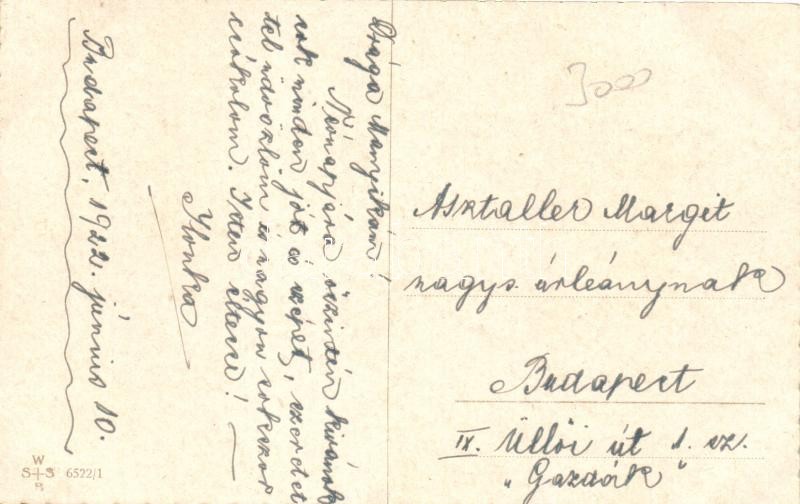 Drága Manyikám!
Névnapjára őszintén kivánok
sok minden jót és szépet, szeretet
tel üdvözlöm és nagyon sokszor
csókolom. Isten éltesse!
Ilonka
Budapest, 1922. június 10.
3000
Asztaller Margit
nagys. úrleánynak
Budapest
IX. Üllői út 1. sz.
"Gazdák"
W
S+S 6522/1
B